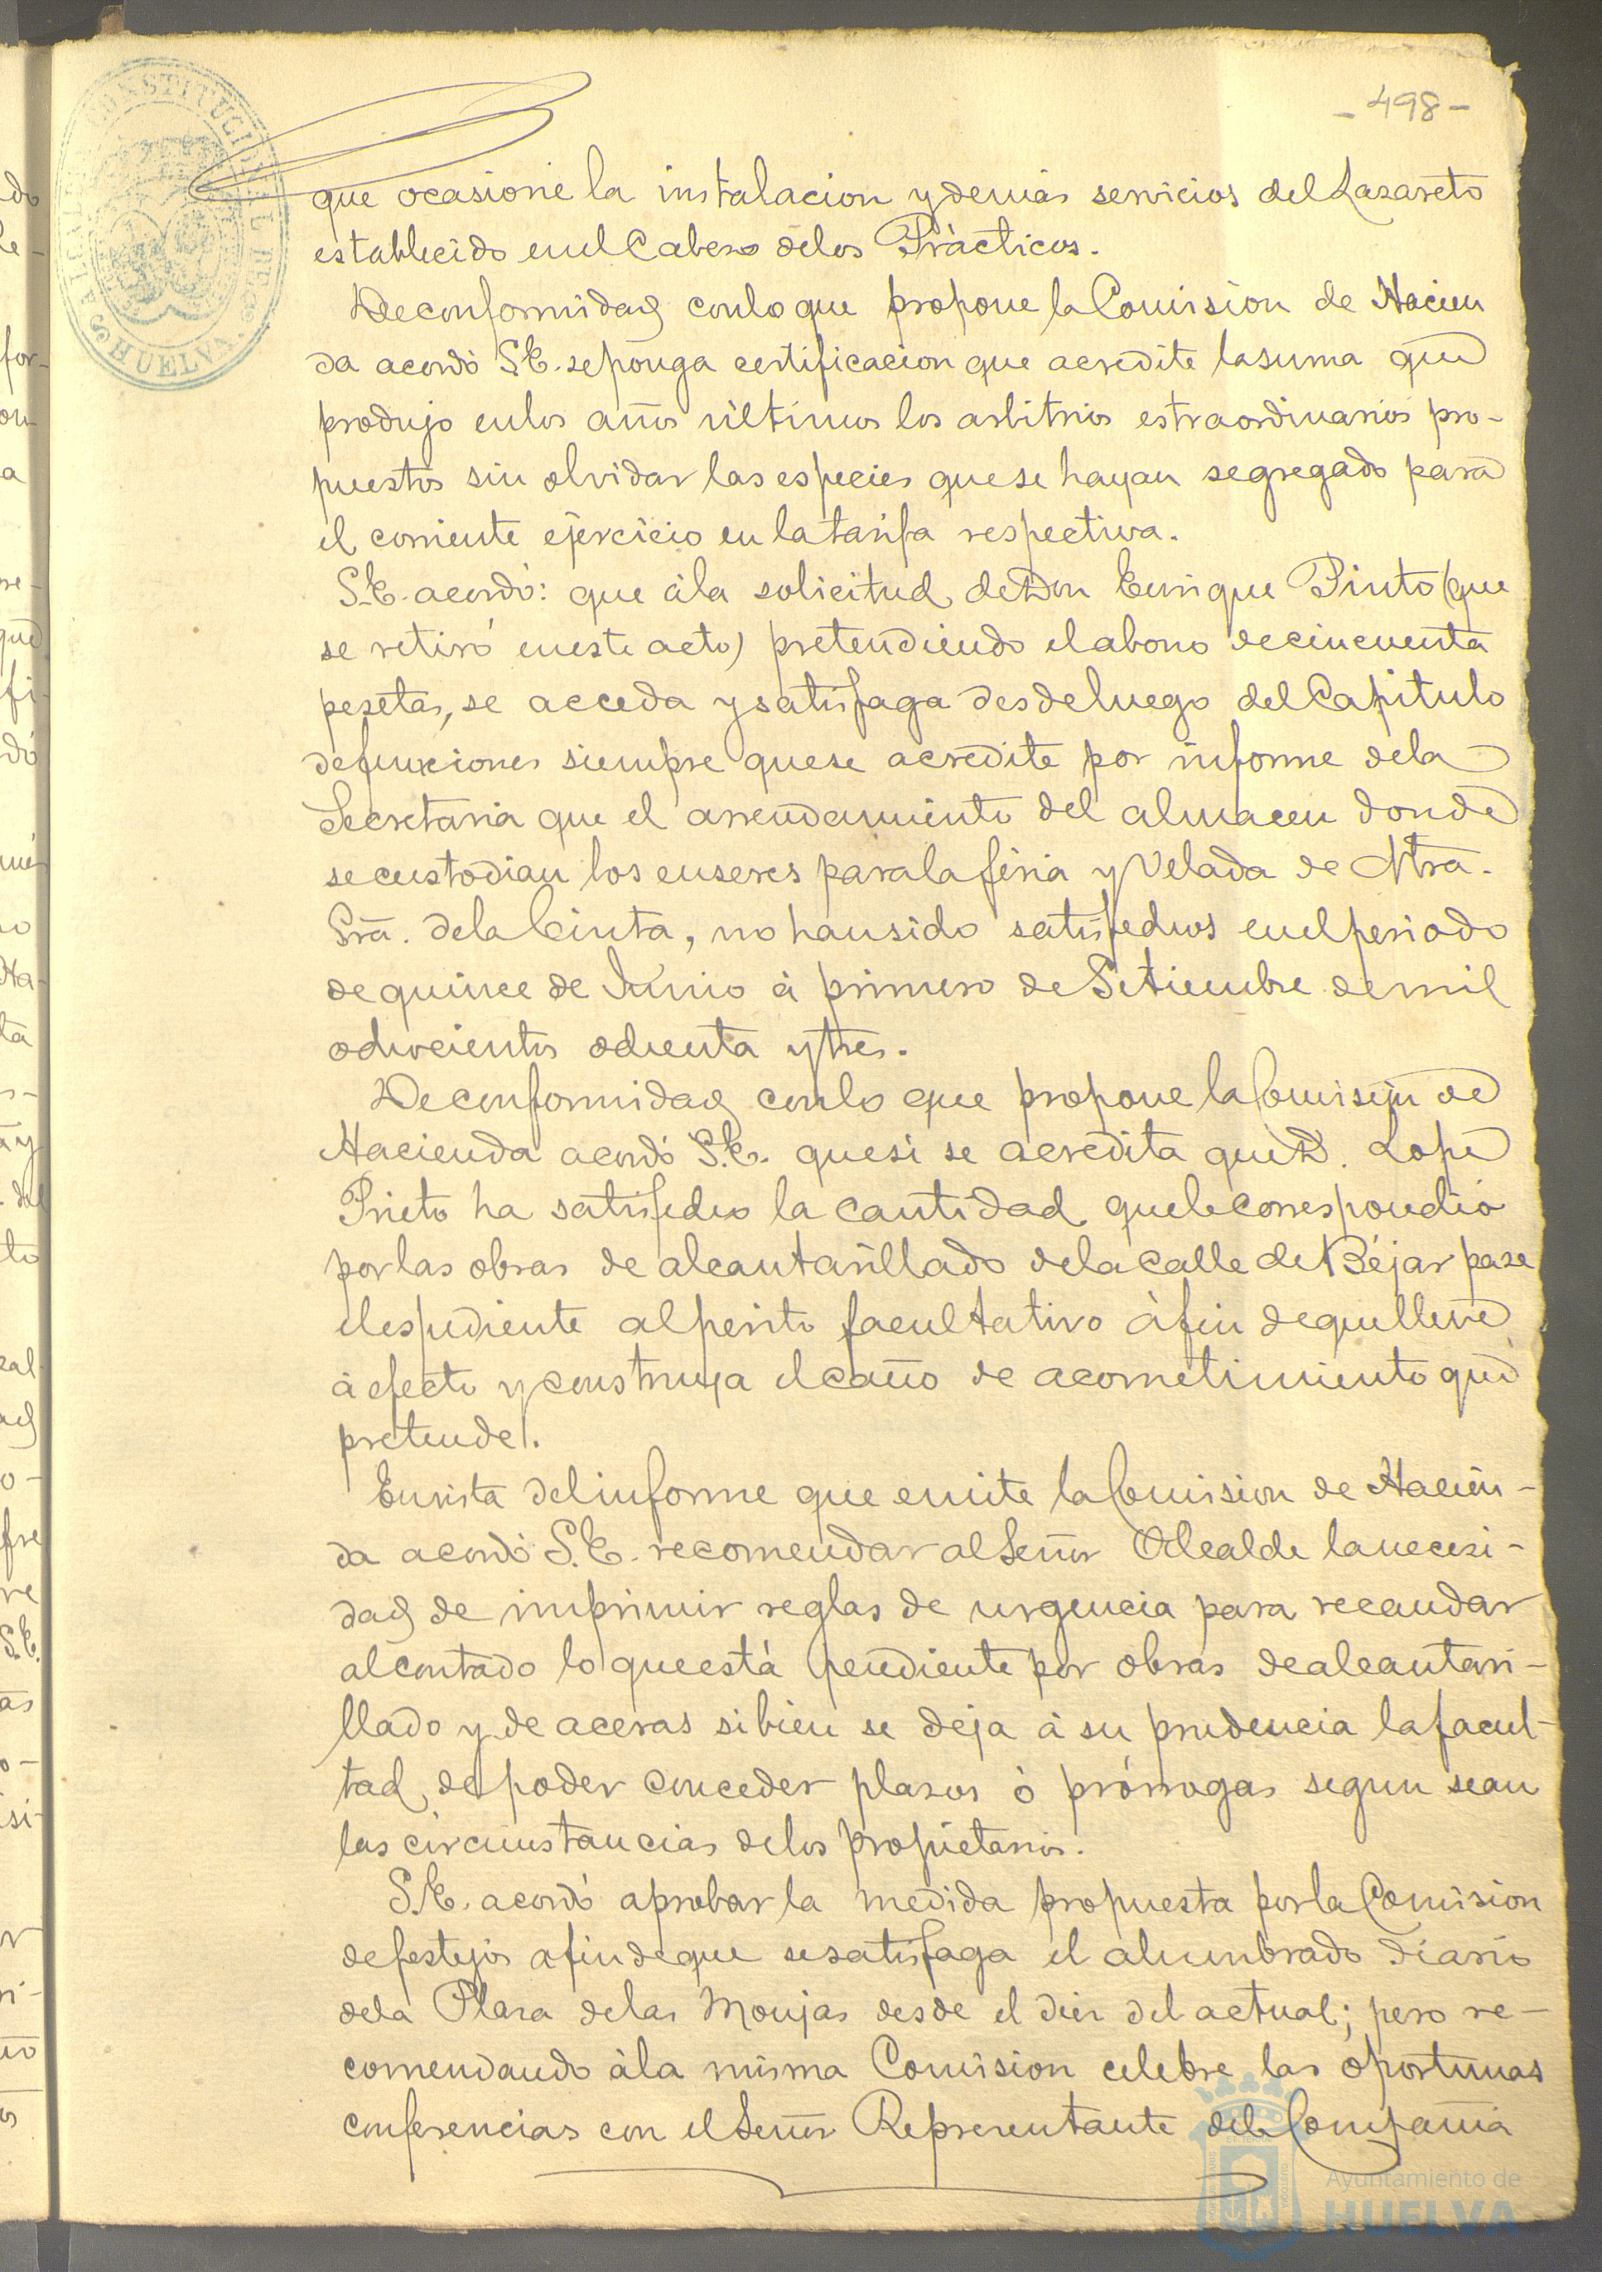 -498-
ALCALDIA CONSTITUCIONAL DE
HUELVA
que ocasione la instalacion y demás servicios del Lazareto
establecido en el Cabezo de los Prácticos.
De conformidad con lo que propone la Comision de Hacien
da acordó S.E. se ponga certificacion que acredite la suma que
produjo en los años últimos los arbitrios estraordinarios pro-
puestos sin olvidar las especies que se hayan segregado para
el corriente ejercicio en la tarifa respectiva.
S.E. acordó: que á la solicitud de Don Enrique Pinto (que
se retiró en este acto) pretendiendo el abono de cincuenta
pesetas, se acceda y satisfaga desde luego del Capitulo
de funciones siempre que se acredite por informe de la
Secretaria que el arrendamiento del almacen donde
se custodian los enseres para la féria y Velada de Ntra.
Sra. de la Cinta, no han sido satisfechos en el periodo
de quince de Junio á primero de Setiembre de mil
ochocientos ochenta y tres.
De conformidad con lo que propone la Comision de
Hacienda acordó S.E. que si se acredita que D. Lope
Prieto ha satisfecho la cantidad que le correspondió
por las obras de alcantarillado de la calle de Béjar pase
el espediente al perito facultativo á fin de que lleve
á efecto y construya el caño de acometimiento que
pretende.
En vista del informe que emite la Comision de Hacien-
da acordó S.E. recomendar al Señor Alcalde la necesi-
dad de imprimir reglas de urgencia para recaudar
al contado lo que está pendiente por obras de alcantari-
llado y de aceras si bien se deja á su prudencia la facul-
tad de poder conceder plazos ó prórrogas segun sean
las circunstancias de los propietarios.
S.E. acordó aprobar la medida propuesta por la Comision
de festejos a fin de que se satisfaga el alumbrado diario
de la Plaza de las Monjas desde el diez del actual; pero re-
comendando á la misma Comision celebre las oportunas
conferencias con el Señor Representante de la Compañia
Ayuntamiento de
HUELVA